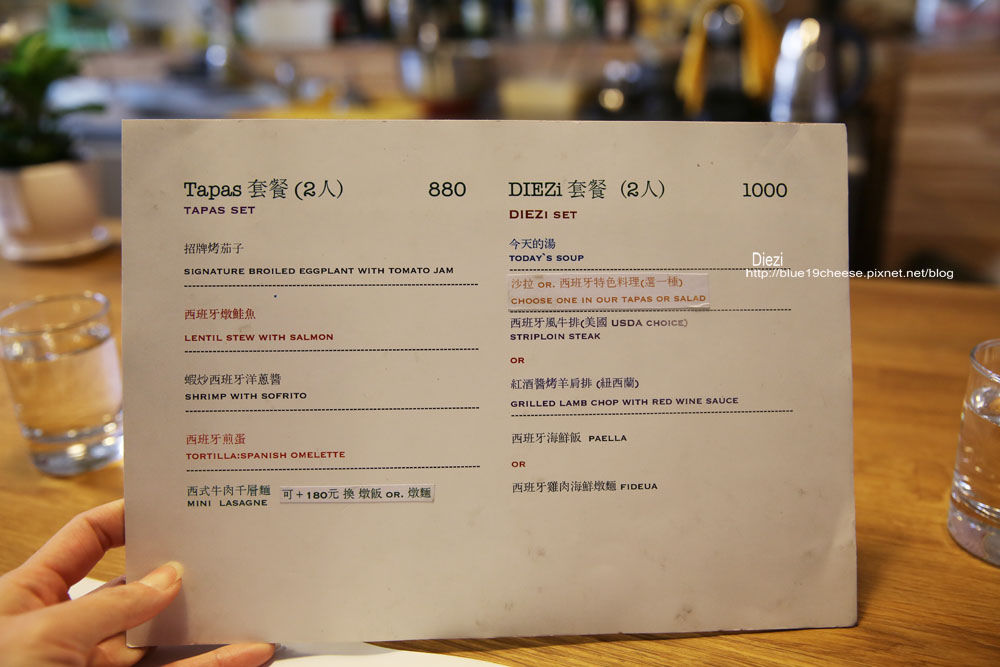 Tapas 套餐 (2人) 880
TAPAS SET
招牌烤茄子
SIGNATURE BROILED EGGPLANT WITH TOMATO JAM
西班牙燉鮭魚
LENTIL STEW WITH SALMON
蝦炒西班牙洋蔥醬
SHRIMP WITH SOFRITO
西班牙煎蛋
TORTILLA:SPANISH OMELETTE
西式牛肉千層麵
MINI LASAGNE
可+180元 換 燉飯 OR. 燉麵
DIEZi 套餐 (2人) 1000
DIEZI SET
今天的湯
TODAY`S SOUP
沙拉 OR. 西班牙特色料理(選一種)
CHOOSE ONE IN OUR TAPAS OR SALAD
西班牙風牛排(美國 USDA CHOICE)
STRIPLOIN STEAK
OR
紅酒醬烤羊肩排 (紐西蘭)
GRILLED LAMB CHOP WITH RED WINE SAUCE
西班牙海鮮飯 PAELLA
OR
西班牙雞肉海鮮燉麵 FIDEUA
Diezi
http://blue19cheese.pixnet.net/blog